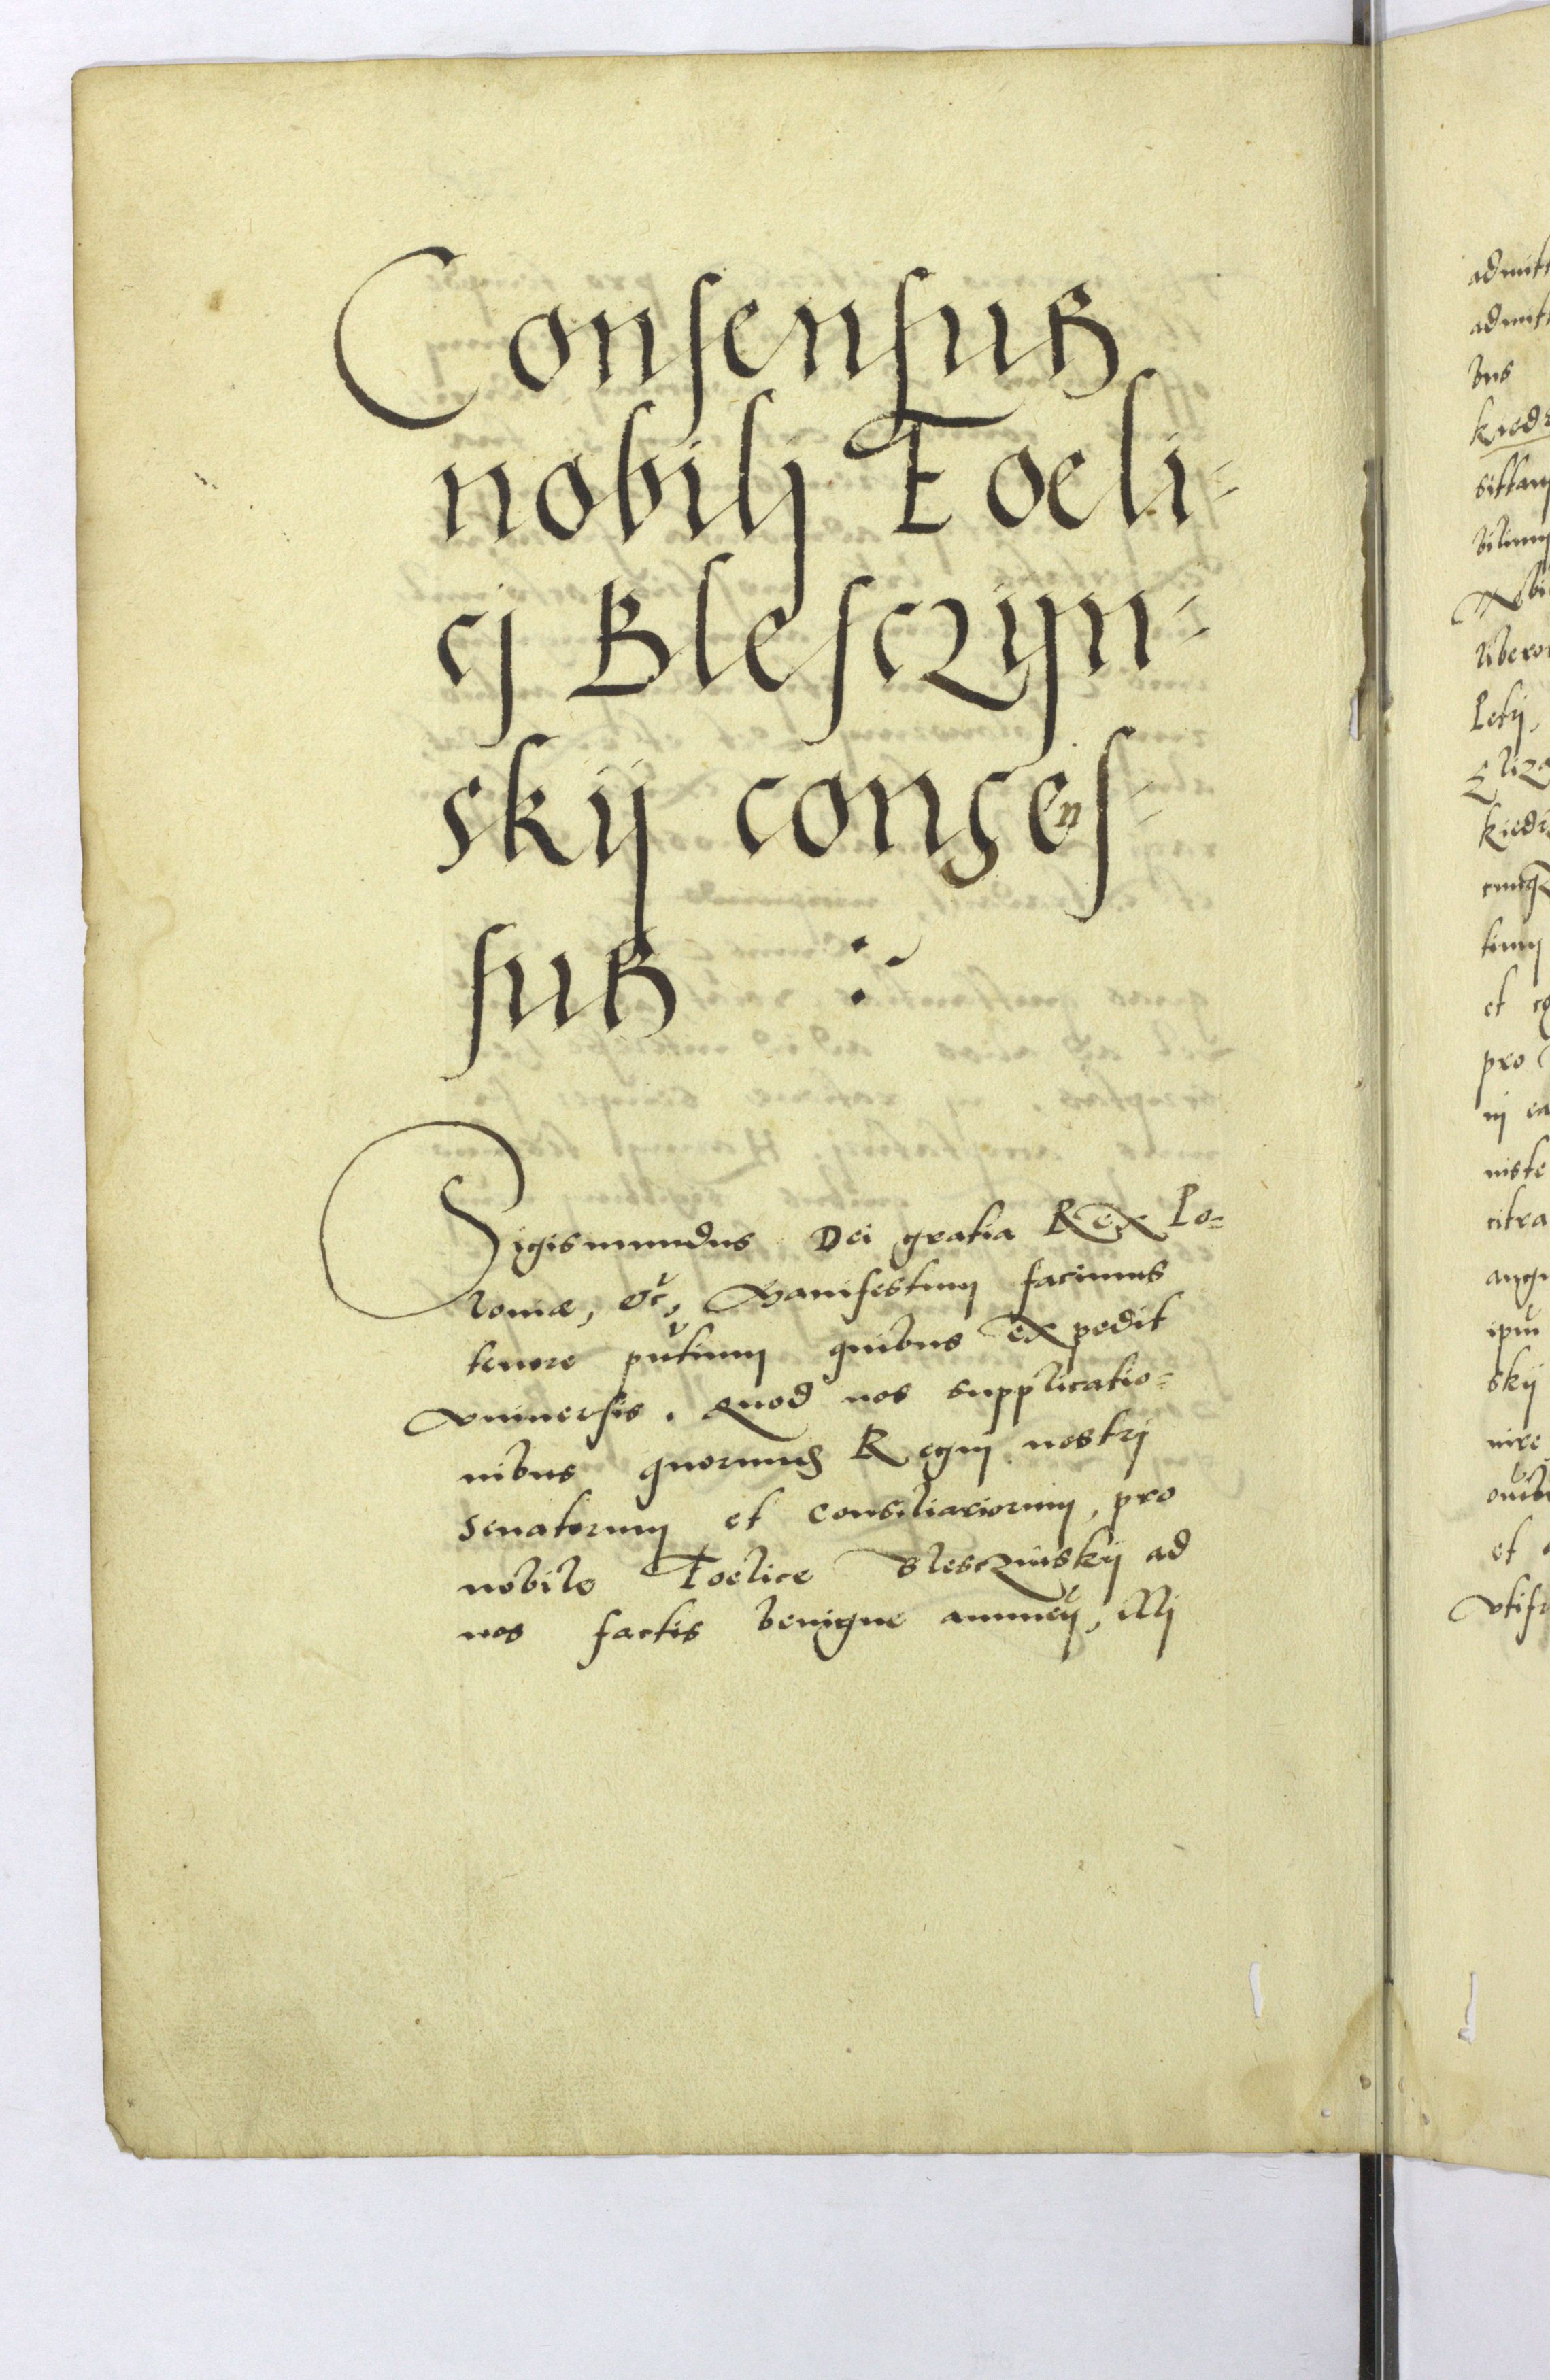 Consensus
nobilj Foeli-
cj Blesczyn-
skij consens-
sus :~
Sigismundus Dei gratia Rex Po-
loniæ, &c, Manifestum facimus
tenore pñtium quibus expedit
vniuersis. Quod nos supplicatio-
nibus quorund Regni nostrj
Senatorum et Consiliariorum, pro
nobile Foelice Blesczinskij ad
nos factis benigne annueñ, illj
admitt
admitt
bus
kiedr
sittam
bilium
Nobi
libero
Petrj,
Eliza
kiedr
cumq
timm
et eg
pro
nj ea
niste
citra
ange
ipm
skij
nire
et
vtifr